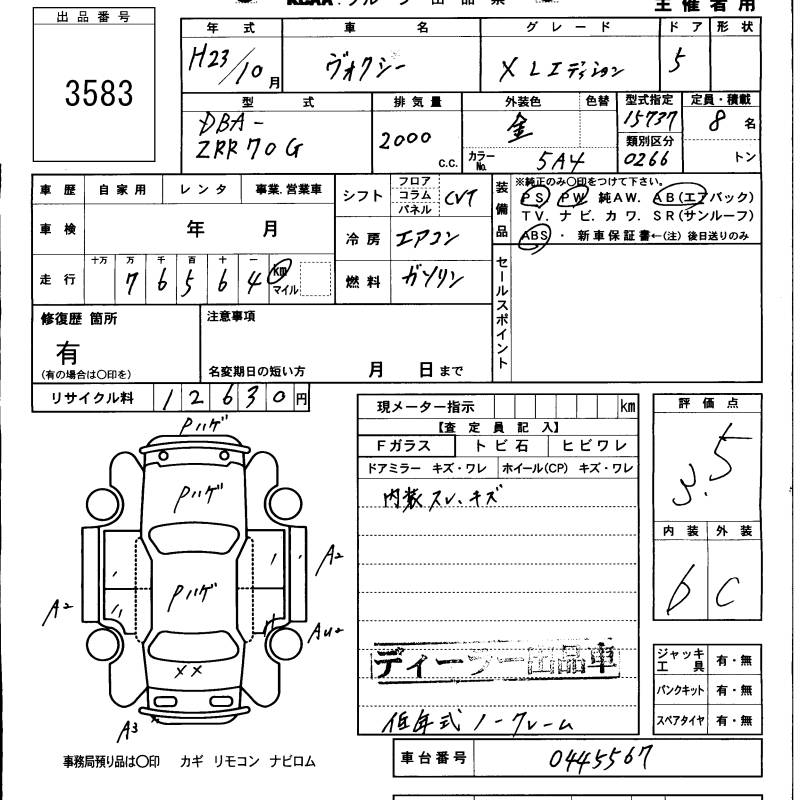 主催者用
出品番号
3583
年式 車名 グレード ドア 形状
H23/10月 ヴォクシー X Lエディション 5
型式 排気量 外装色 色替 型式指定 定員・積載
DBA-
ZRR70G
2000 c.c.
金
カラーNo. 5A4
15737
類別区分
0266
8名
トン
車歴 自家用 レンタ 事業.営業車
車検 年 月
走行 十万 万 千 百 十 一
7 6 5 6 4 km マイル
シフト フロア コラム パネル CVT
冷房 エアコン
燃料 ガソリン
装備品
※純正のみ〇印をつけて下さい。
PS PW 純AW. AB(エアバック)
TV. ナビ. カワ. SR(サンルーフ)
ABS ・ 新車保証書←(注) 後日送りのみ
セールスポイント
修復歴 箇所
有
(有の場合は〇印を)
注意事項
名変期日の短い方 月 日まで
リサイクル料 12630円
Pハゲ
Pハゲ
Pハゲ
A2
A2
AU2
××
A3
事務局預り品は〇印 カギ リモコン ナビロム
現メーター指示 km
【査定員記入】
Fガラス トビ石 ヒビワレ
ドアミラー キズ・ワレ ホイール(CP) キズ・ワレ
内装スレ、キズ
ディーラー出品車
低年式 ノークレーム
評価点
3.5
内装 外装
C
ジャッキ工具 有・無
パンクキット 有・無
スペアタイヤ 有・無
車台番号 0445567